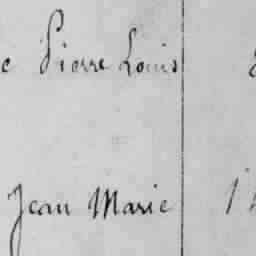 c Pierre Louis
Jean Marie 1